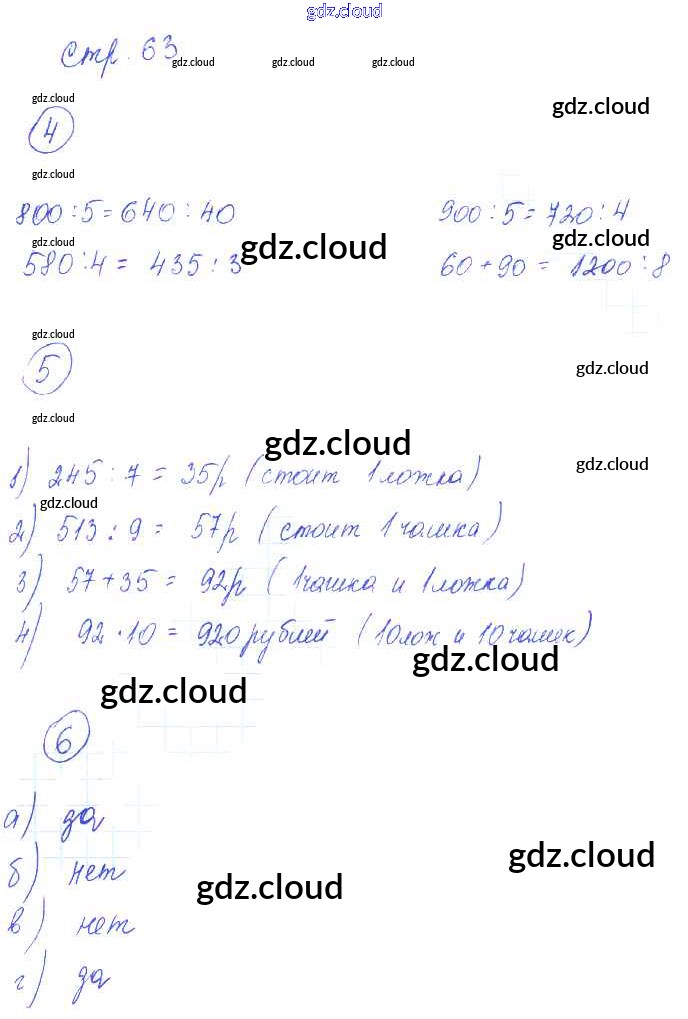 gdz.cloud
стр. 63
gdz.cloud gdz.cloud gdz.cloud
gdz.cloud
gdz.cloud
4
gdz.cloud
800 : 5 = 640 : 40 900 : 5 = 720 : 4
gdz.cloud gdz.cloud gdz.cloud
580 : 4 = 435 : 3 60 + 90 = 1200 : 8
gdz.cloud
5
gdz.cloud
gdz.cloud
gdz.cloud
gdz.cloud
1) 245 : 7 = 35р (стоит 1 ложка)
gdz.cloud
2) 513 : 9 = 57р (стоит 1 чашка)
3) 57 + 35 = 92р (1 чашка и 1 ложка)
4) 92 · 10 = 920 рублей (10 лож и 10 чашек)
gdz.cloud
gdz.cloud
6
а) да
gdz.cloud
б) нет
gdz.cloud
в) нет
г) да